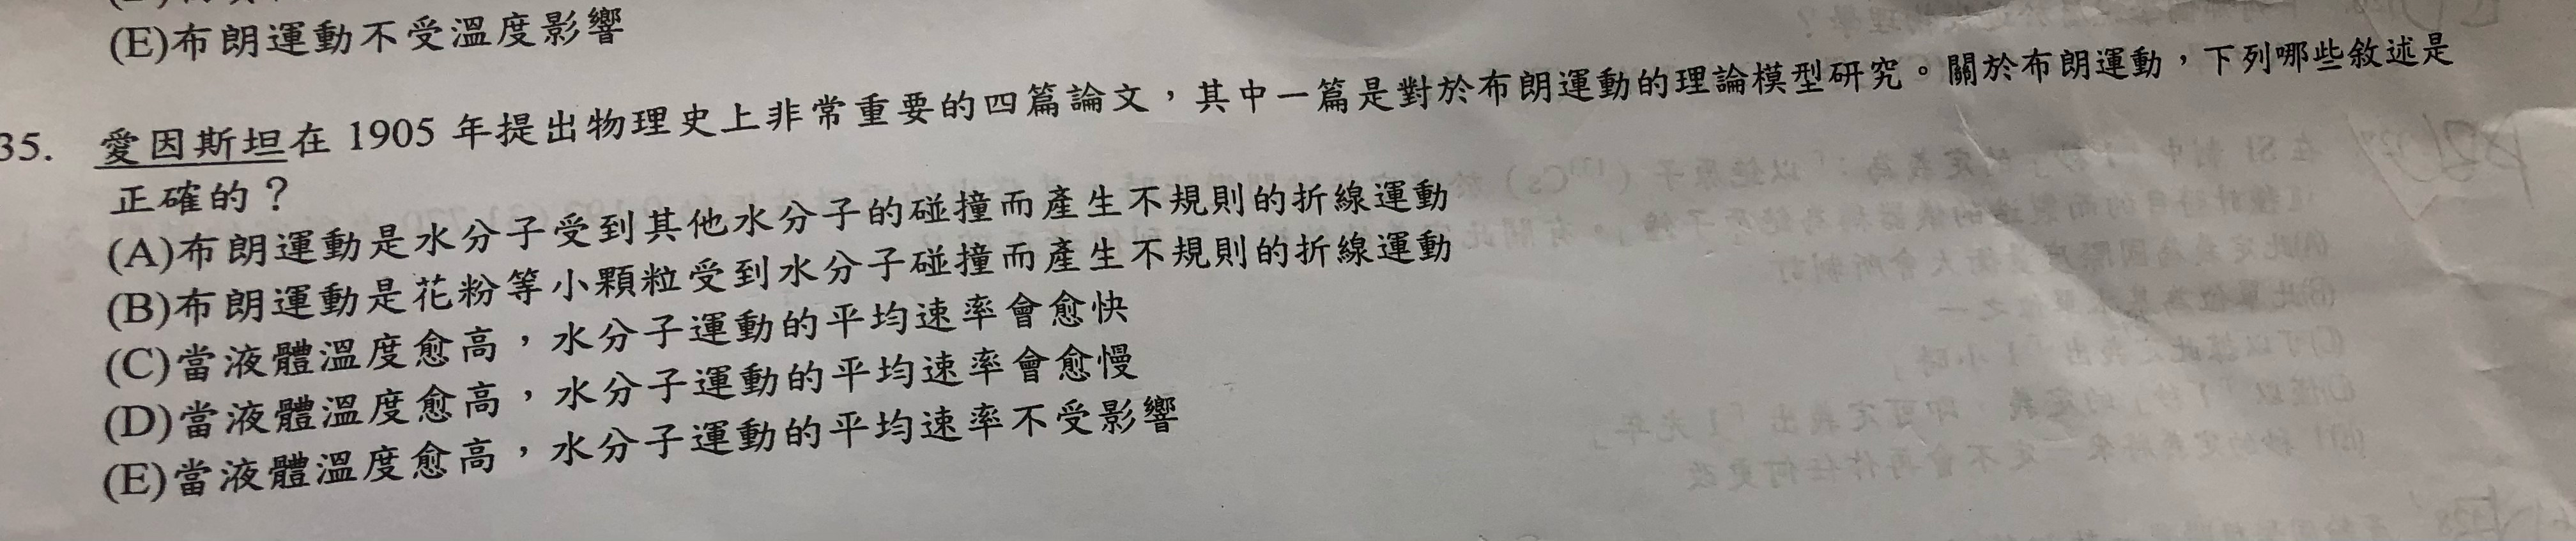 (E)布朗運動不受溫度影響
35. 愛因斯坦在 1905 年提出物理史上非常重要的四篇論文，其中一篇是對於布朗運動的理論模型研究。關於布朗運動，下列哪些敘述是
正確的？
(A)布朗運動是水分子受到其他水分子的碰撞而產生不規則的折線運動
(B)布朗運動是花粉等小顆粒受到水分子碰撞而產生不規則的折線運動
(C)當液體溫度愈高，水分子運動的平均速率會愈快
(D)當液體溫度愈高，水分子運動的平均速率會愈慢
(E)當液體溫度愈高，水分子運動的平均速率不受影響